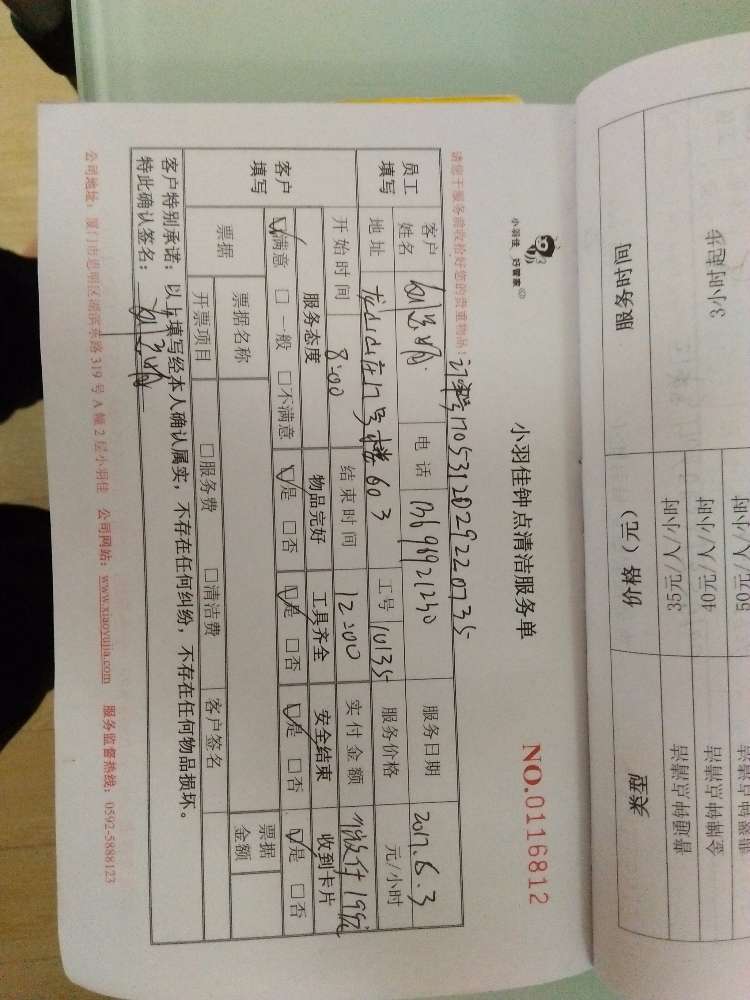 小羽佳 好管家
小羽佳钟点清洁服务单
NO.0116812
请您于服务前收拾好您的贵重物品!
170531202922 0735
员工填写
客户姓名
电话 13698921250
服务日期 2017.6.3
地址 龙山山庄17号楼603
工号 10135
服务价格 元/小时
客户填写
开始时间 8:00
结束时间 12:00
实付金额
服务态度 物品完好 工具齐全 安全结束 收到卡片
☑满意 □一般 □不满意 ☑是 □否 ☑是 □否 ☑是 □否 ☑是 □否
票据
票据名称
票据金额
开票项目 □服务费 □清洁费 客户签名
客户特别承诺:以上填写经本人确认属实,不存在任何纠纷,不存在任何物品损坏。
特此确认签名:
公司地址:厦门市思明区湖滨东路319号A幢2层小羽佳 公司网站:www.xiaoyujia.com 服务监督热线:0592-5888123
类型 价格(元) 服务时间
普通钟点清洁 35元/人/小时 3小时起步
金牌钟点清洁 40元/人/小时
钟点清洁 50元/人/小时